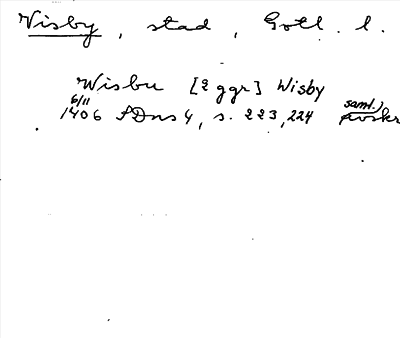 Visby, stad, Gotl. l.
Wisbu [2 ggr] Wisby
6/11 samt.)
1406 SDns 4, s. 223, 224 avskr